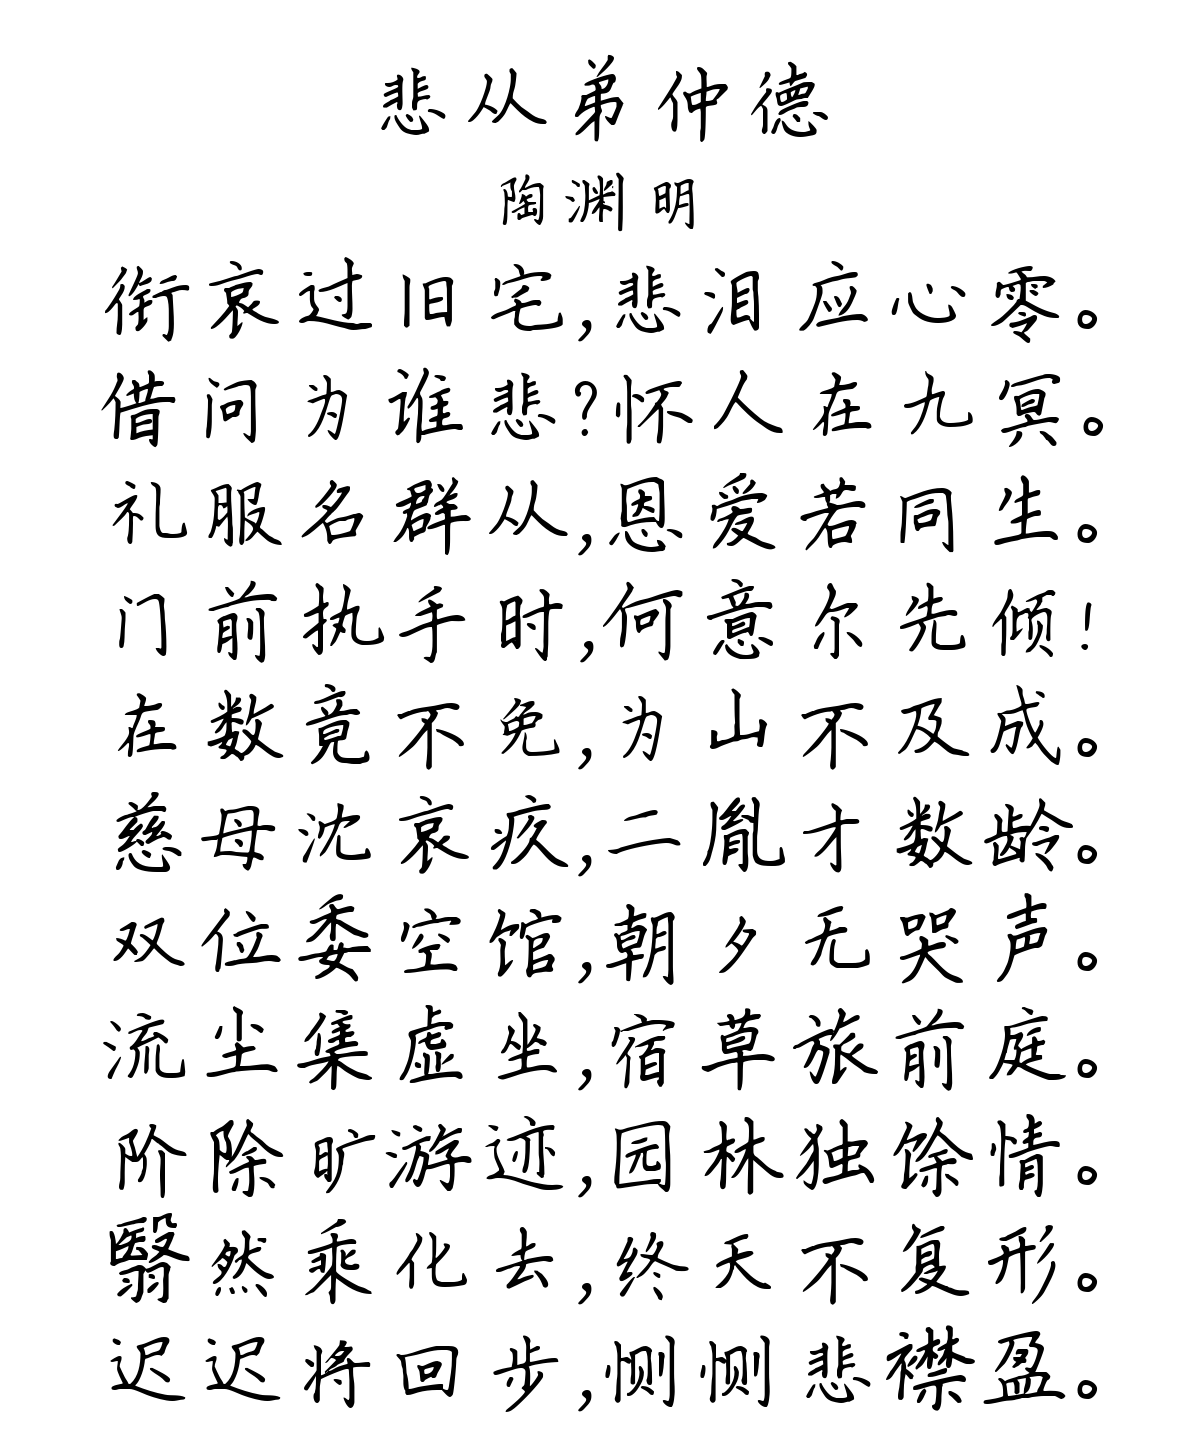 悲从弟仲德
陶渊明
衔哀过旧宅,悲泪应心零。
借问为谁悲?怀人在九冥。
礼服名群从,恩爱若同生。
门前执手时,何意尔先倾!
在数竟不免,为山不及成。
慈母沈哀疚,二胤才数龄。
双位委空馆,朝夕无哭声。
流尘集虚坐,宿草旅前庭。
阶除旷游迹,园林独馀情。
翳然乘化去,终天不复形。
迟迟将回步,恻恻悲襟盈。